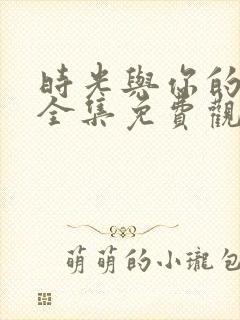 時光與你的
全集免費觀
萌萌的小瓏包